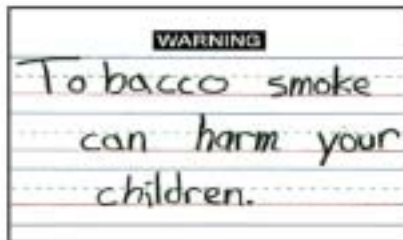 WARNING
Tobacco smoke
can harm your
children.